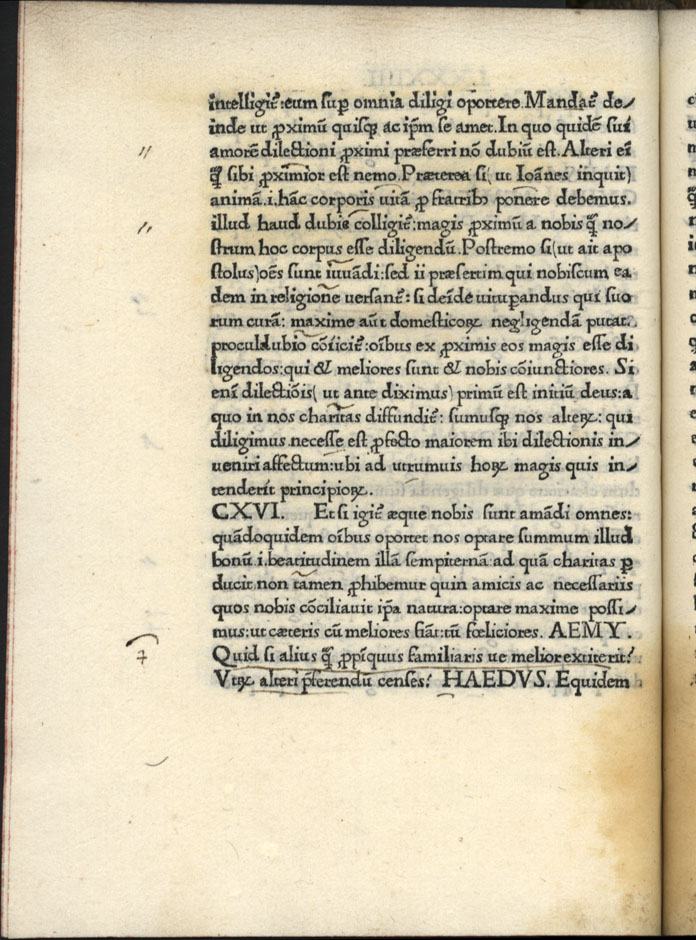 intelligit᷒: eum sup̱ omnia diligi oportere. Mandat᷒ de⸗
inde ut ꝓximū quisq; ac ip̄m se amet. In quo quidē sui
amorē dilectioni ꝓximi præferri nō dubiū est. Alteri ei
ꝙ̄ sibi ꝓximior est nemo. Præterea si( ut Ioānes inquit)
animā .i. hāc corporis uitā ꝓ fratribꝰ ponere debemus.
illud haud dubie colligit᷒: magis ꝓximū a nobis ꝙ̄ no⸗
strum hoc corpus esse diligendū. Postremo si(ut ait apo
stolus)oēs sunt iuuādi: sed ii præsertim qui nobiscum ea
dem in religione uersant᷒: si deīde uitup̱andus qui suo
rum curā: maxime aūt domesticoꝝ negligendā putat.
procul dubio cōiicit᷒: oībus ex ꝓximis eos magis esse di
ligendos: qui & meliores sunt & nobis cōiunctiores. Si
enī dilectiōis( ut ante diximus) primū est initiū deus: a
quo in nos charitas diffundit᷒: sumusq; nos alteꝝ: qui
diligimus. necesse est ꝓfecto maiorem ibi dilectionis in⸗
ueniri affectum: ubi ad utrumuis hoꝝ magis quis in⸗
tenderit principioꝝ.
CXVI. Et si igit᷒ æque nobis sunt amādi omnes:
quādoquidem oībus oportet nos optare summum illud
bonū .i. beatitudinem illā sempiternā ad quā charitas p̱
ducit. non tamen ꝓhibemur quin amicis ac necessariis
quos nobis cōciliauit ip̄a natura: optare maxime possi⸗
mus: ut cæteris cū meliores fiāt: tū fœliciores. AEMY.
Quid si alius ꝙ̄ ꝓpīquus familiaris ue melior extiterit?
Vtꝝ alteri p̄ferendū censes? HAEDVS. Equidem